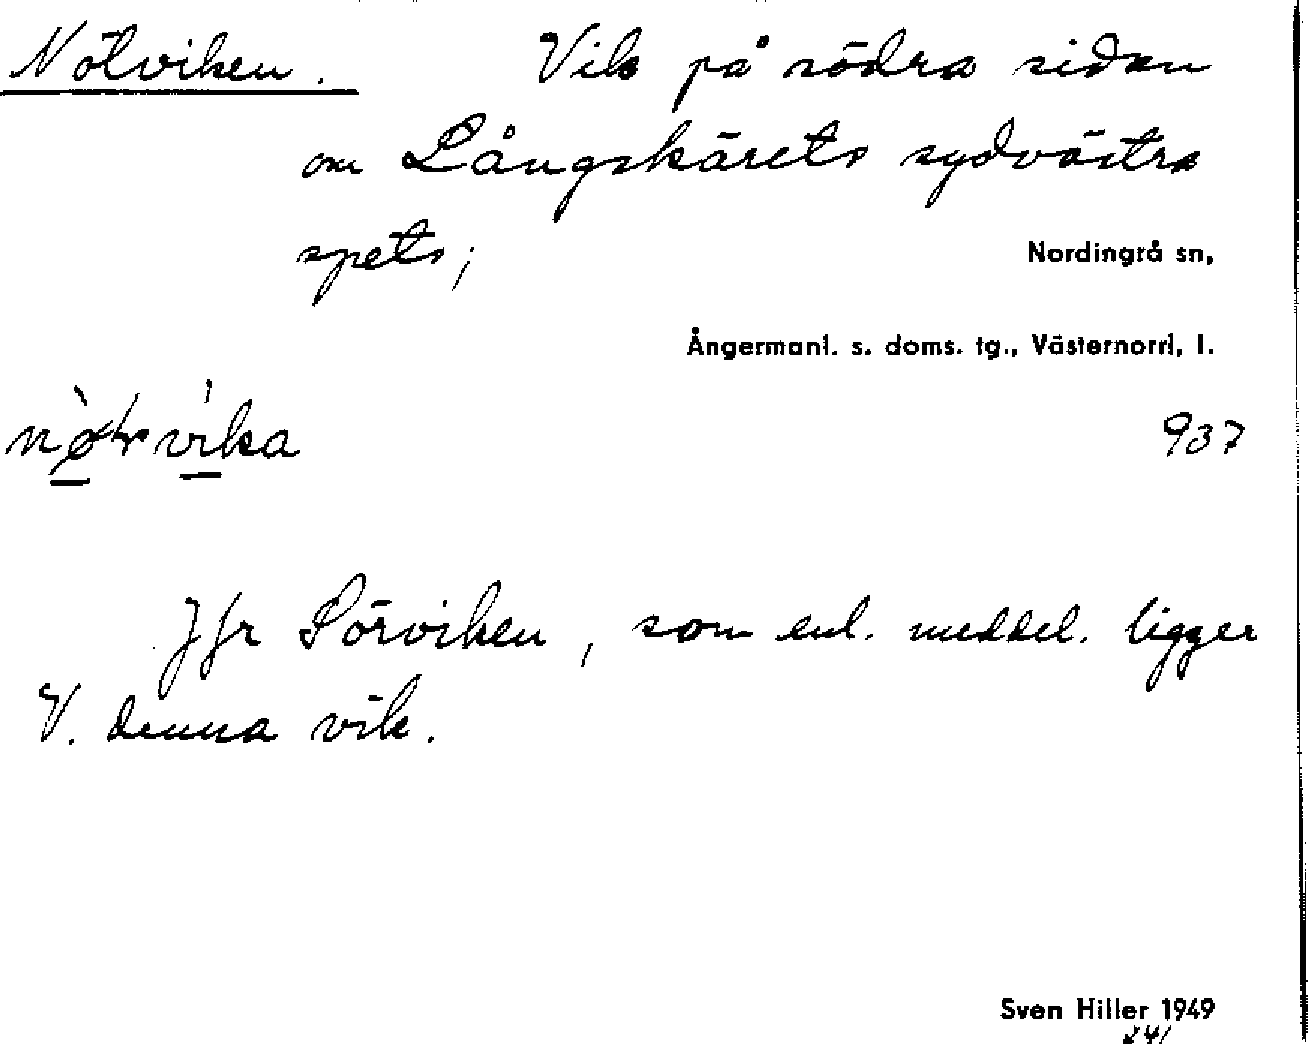 Notviken. Vik på södra sidan
om Långskärets sydvästra
spets; Nordingrå sn,
Ångermanl. s. doms. tg., Västernorrl, l.
937
Jfr Sörviken, som enl. meddel. ligger
V. denna vik.
Sven Hiller 1949